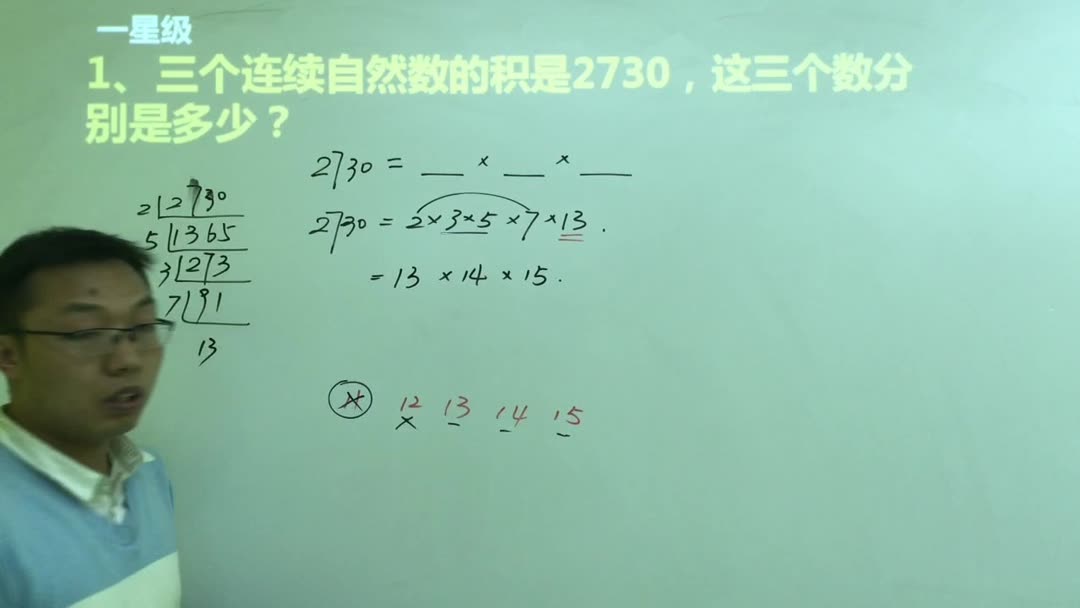 一星级
1、三个连续自然数的积是2730，这三个数分
别是多少？
2730 = __ × __ × __
2730 = 2×3×5×7×13.
= 13 × 14 × 15.
2 2730
5 1365
3 273
7 91
13
12 13 14 15
×